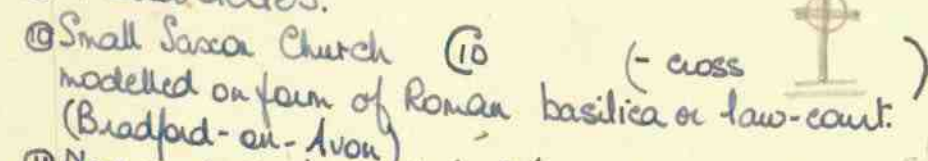 ⑩ Small Saxon Church ⑩ (- cross )
modelled on form of Roman basilica or law-court.
(Bradford-on-Avon)